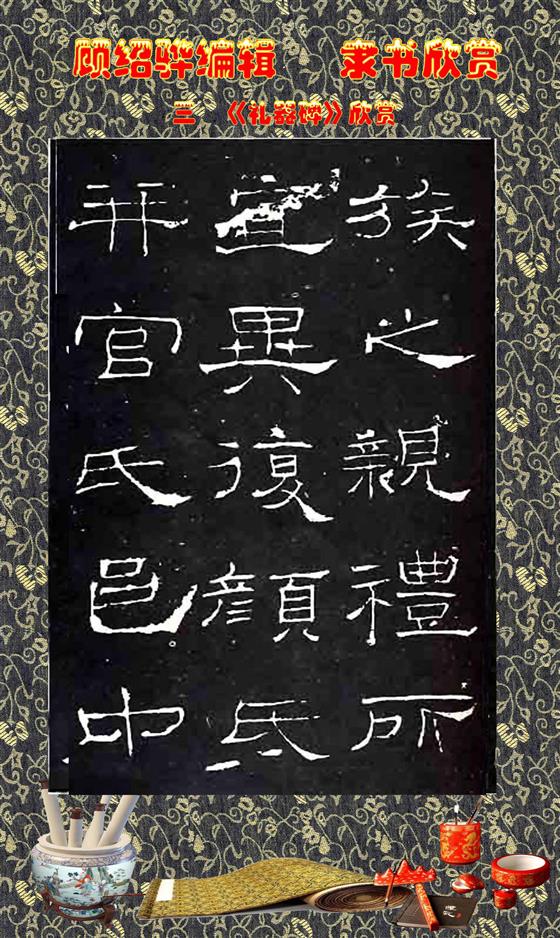 顾绍骅编辑 隶书欣赏
三 《礼器碑》欣赏
族之親禮所
宜異復顏氏
并官氏邑中